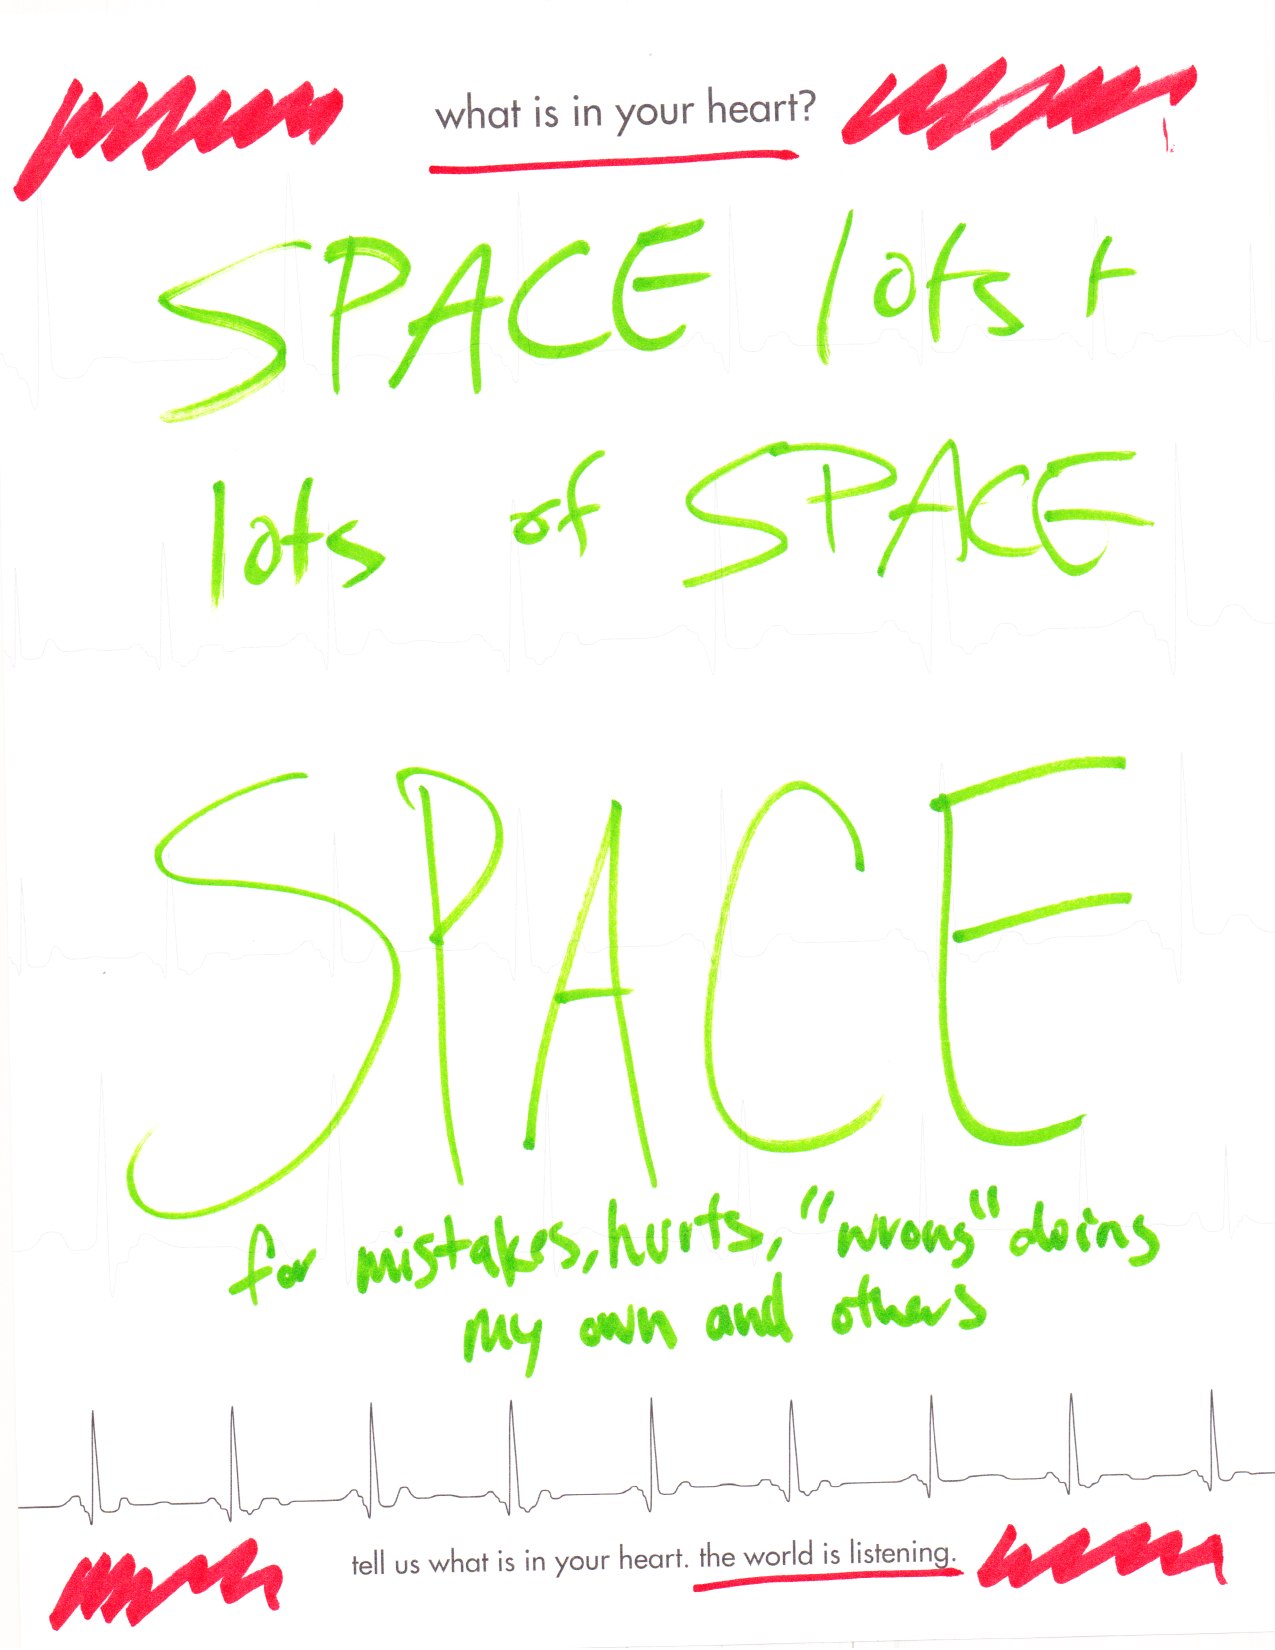 what is in your heart?
SPACE lots +
lots of SPACE
SPACE
for mistakes, hurts, "wrong" doings
my own and others
tell us what is in your heart. the world is listening.